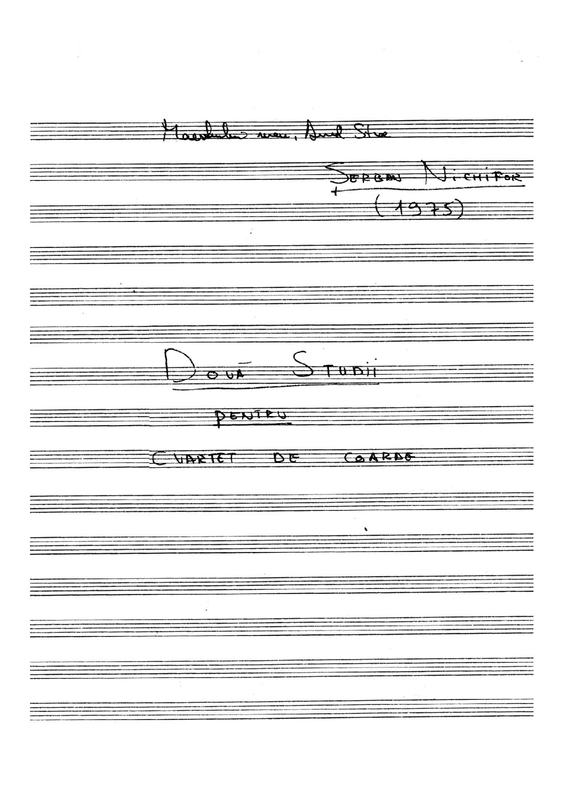 Maestrului meu, Aurel Stroe
Șerban Nichifor
(1975)
Două Studii
pentru
Cuartet de coarde